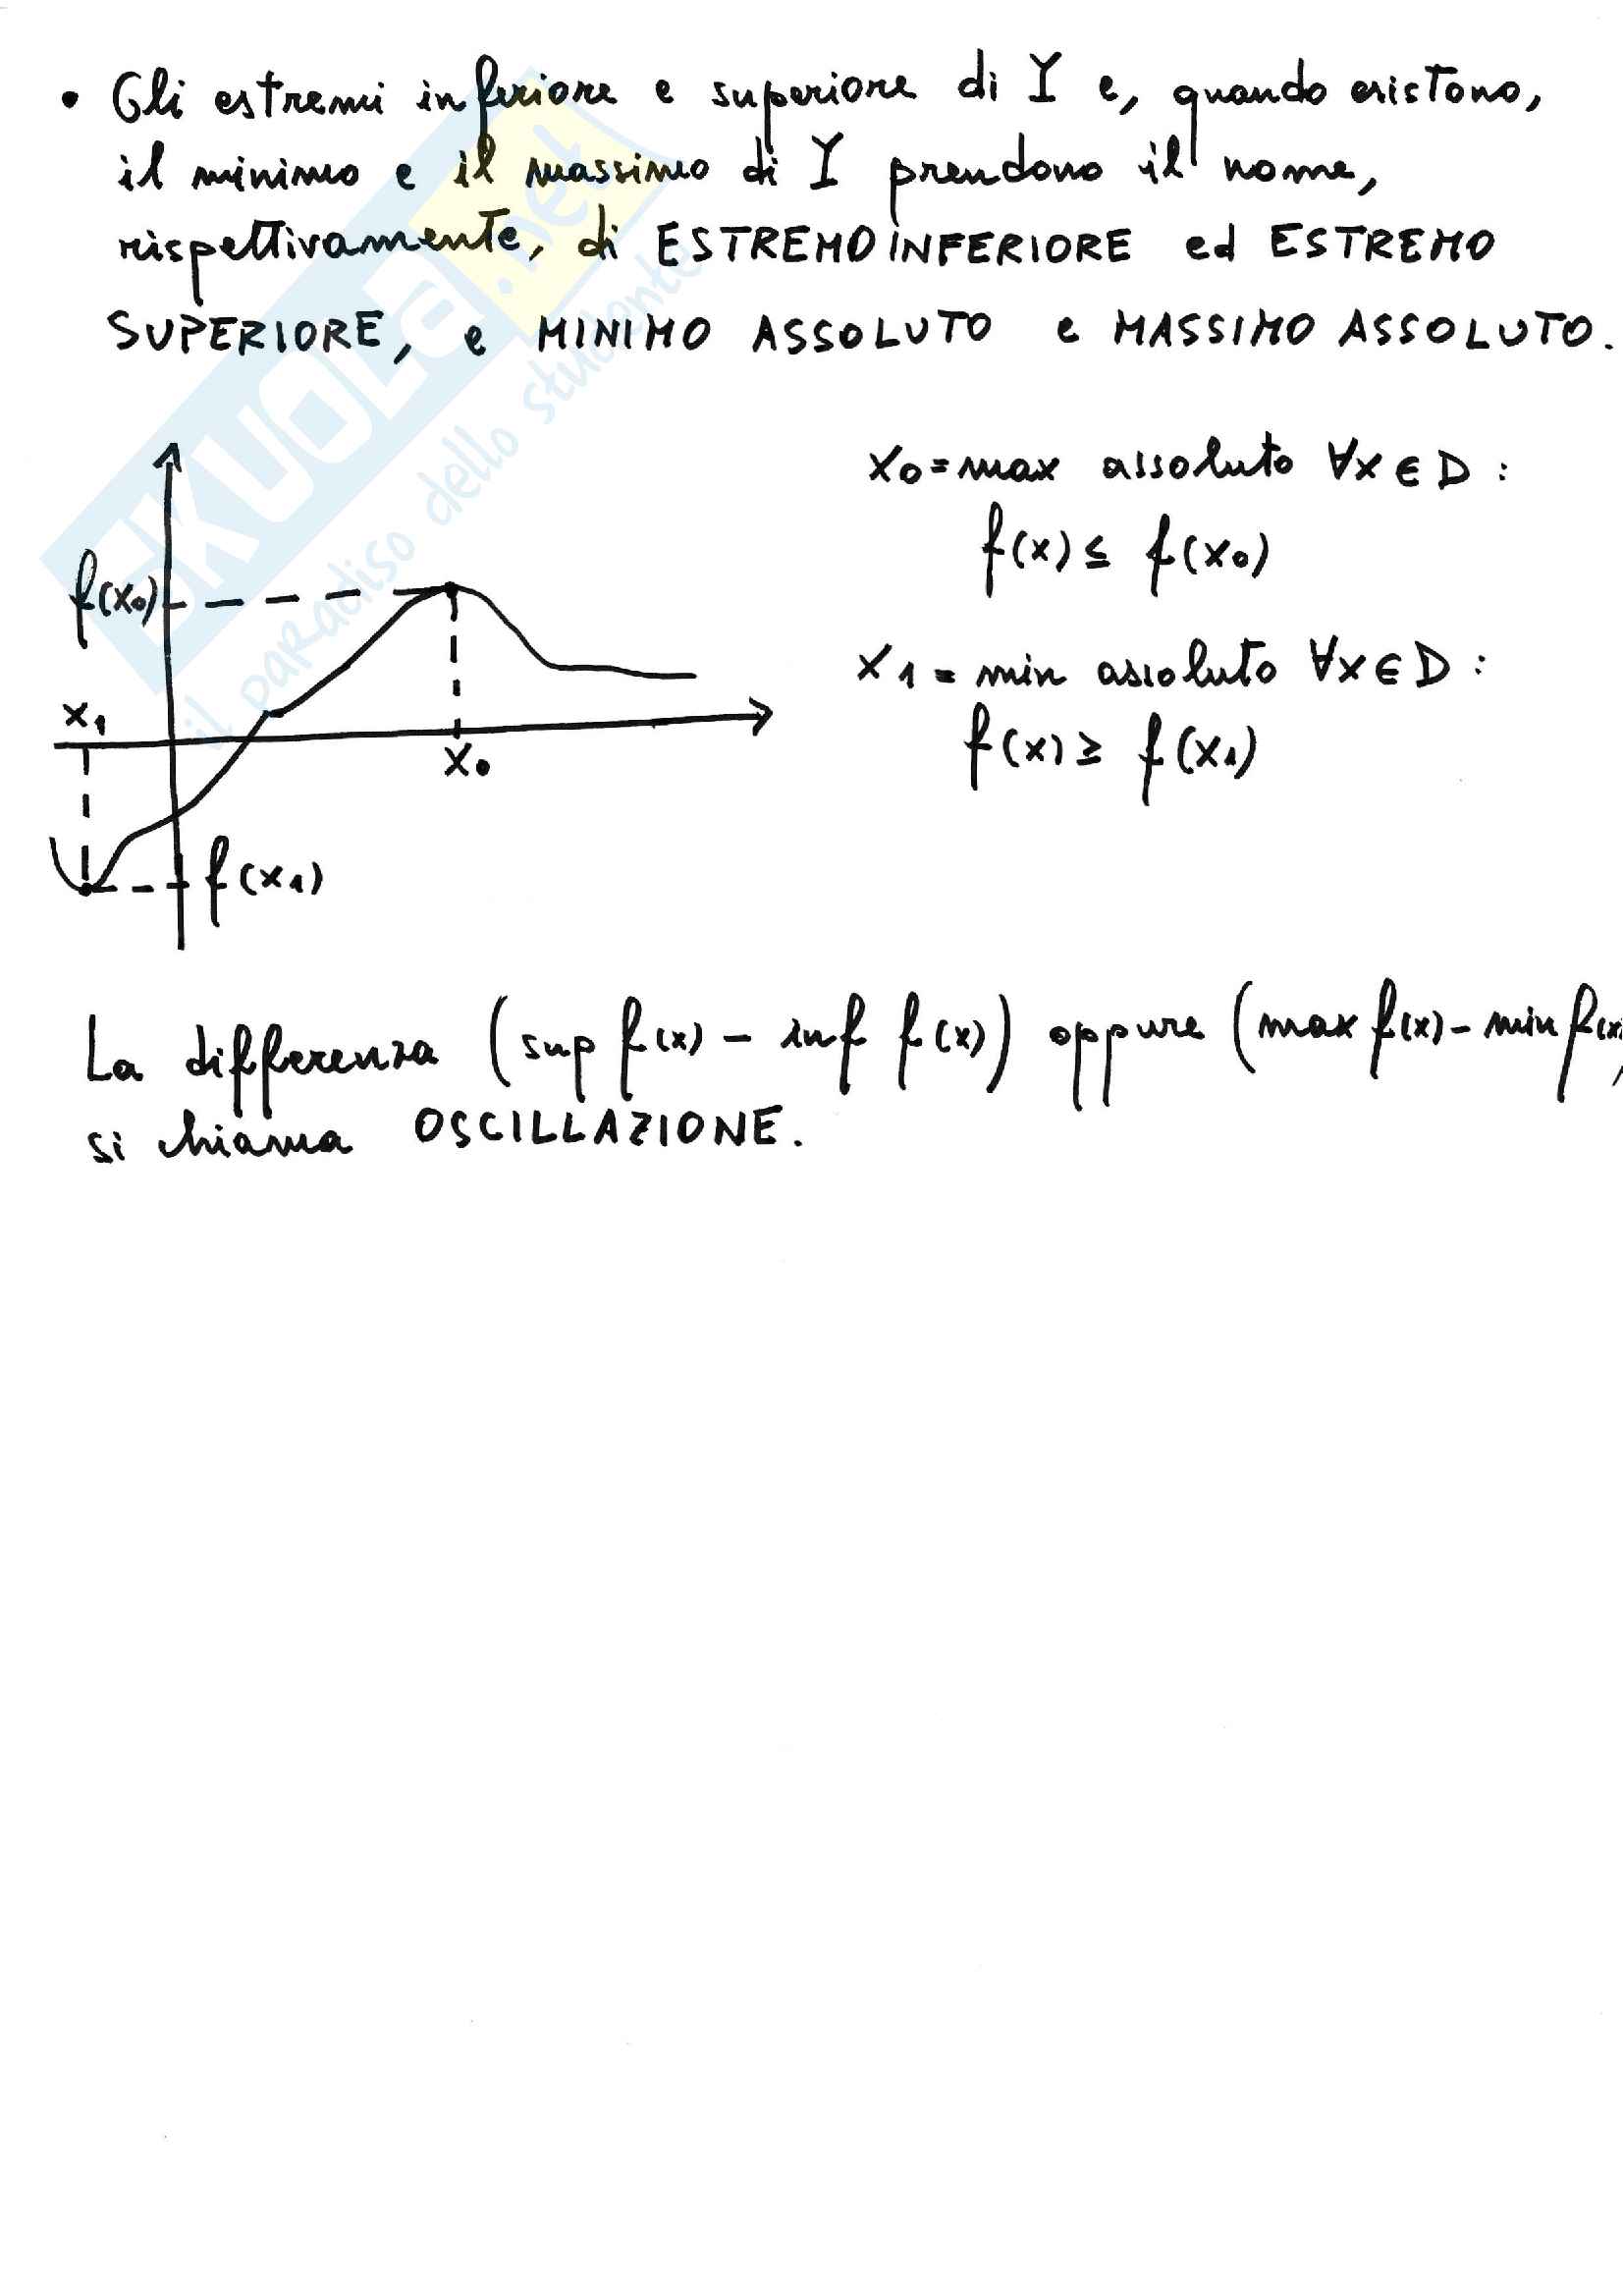 • Gli estremi inferiore e superiore di Y e, quando esistono,
il minimo e il massimo di Y prendono il nome,
rispettivamente, di ESTREMO INFERIORE ed ESTREMO
SUPERIORE, e MINIMO ASSOLUTO e MASSIMO ASSOLUTO.
SKUOLA.net
il paradiso dello studente
x₀ = max assoluto ∀x ∈ D :
f(x) ≤ f(x₀)
x₁ = min assoluto ∀x ∈ D :
f(x) ≥ f(x₁)
f(x₀)
x₁
x₀
f(x₁)
La differenza (sup f(x) - inf f(x)) oppure (max f(x) - min f(x)
si chiama OSCILLAZIONE.